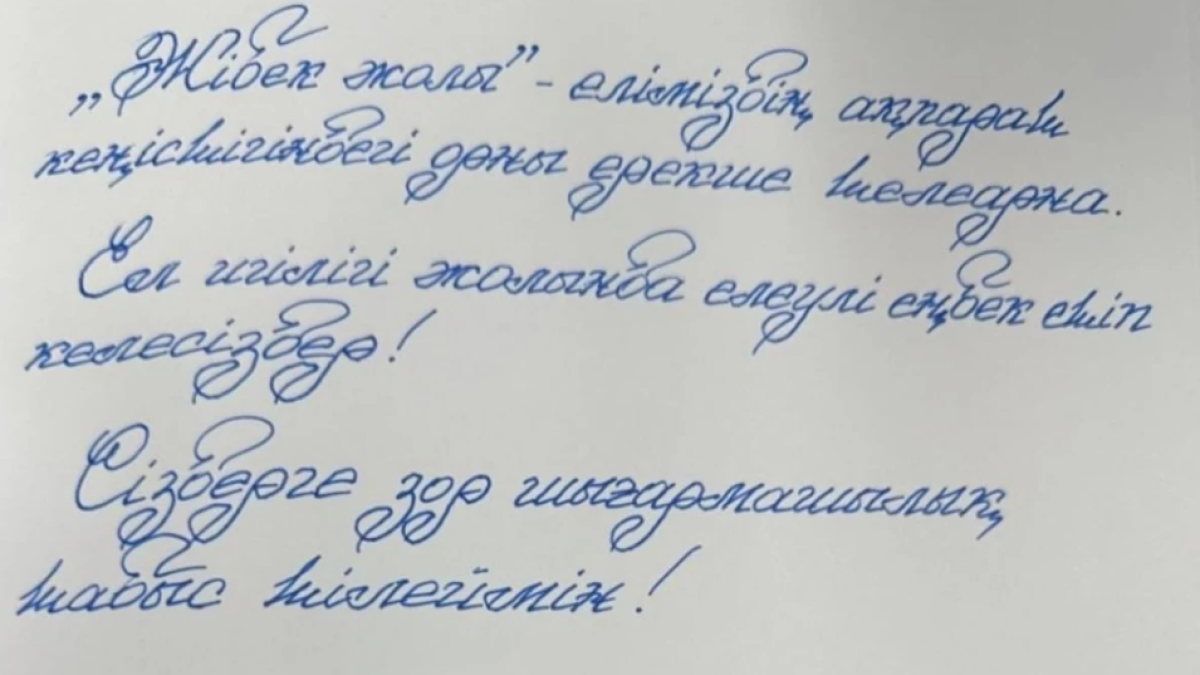 „Жібек жолы" - еліміздің ақпарат
кеңістігіндегі орны ерекше телеарна.
Ел игілігі жолында елеулі еңбек етіп
келесіздер!
Сіздерге зор шығармашылық
табыс тілеймін!